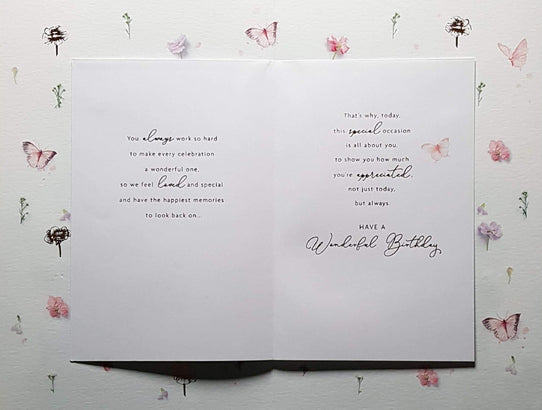 You always work so hard
to make every celebration
a wonderful one,
so we feel loved and special
and have the happiest memories
to look back on...
That's why, today,
this special occasion
is all about you,
to show you how much
you're appreciated,
not just today,
but always.
HAVE A
Wonderful Birthday